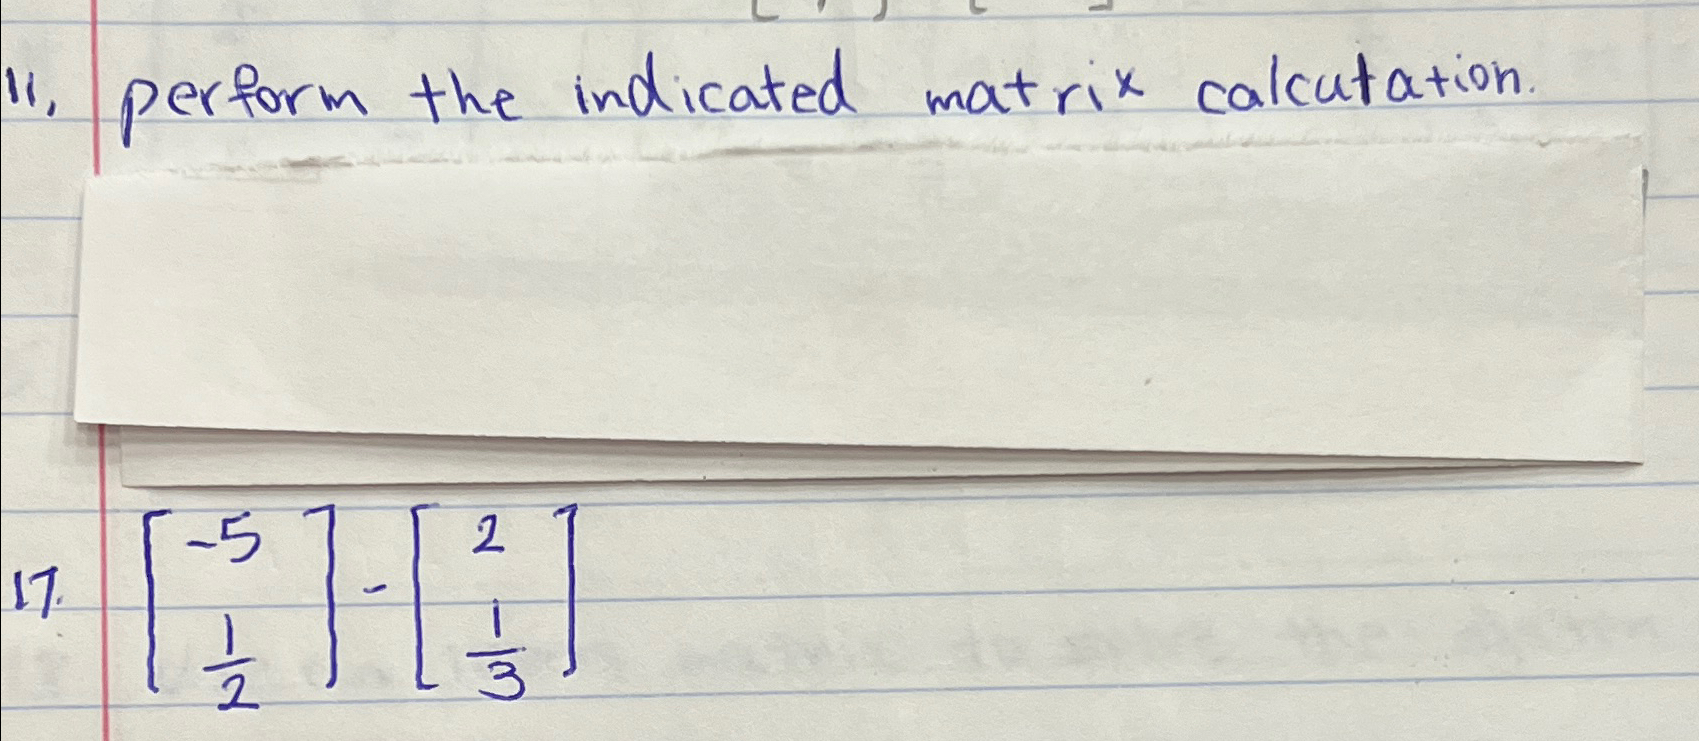 11, perform the indicated matrix calcutation.
17. [-5 1/2] - [2 1/3]